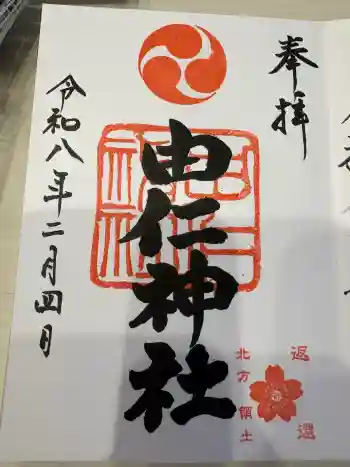 奉拝
由仁神社
令和八年二月四日
返還
北方領土